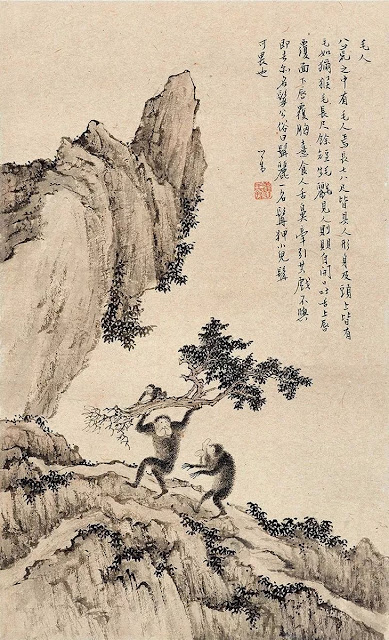 毛人
八荒之中有毛人焉長七八尺皆具人形身及頭上皆有
毛如獼猴毛長尺餘見人則瞑目開口吐舌上唇
覆面下唇覆胸憙食人舌鼻牽引共戲不與
即去亦名髯公俗曰髯麗一名髯狎小兒髯
可畏也
心畬